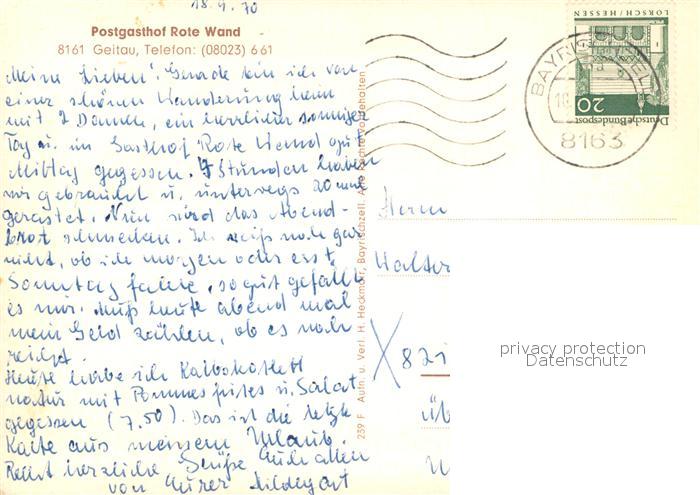 18.9.70
Postgasthof Rote Wand
8161 Geitau, Telefon: (08023) 661
Meine Lieben! Gerade bin ich von
einer schönen Wanderung heim
mit 2 Damen, ein herrlicher sonniger
Tag u. im Gasthof Rote Wand zu
Mittag gegessen. 7 Stunden haben
wir gebraucht u. unterwegs 20 min
gerastet. Nun wird das Abend-
brot schmecken. Ich weiß noch gar
nicht, ob ich morgen oder erst
Sonntag fahre, so gut gefällt
es mir. Muß heute abend mal
mein Geld zählen, ob es noch
reicht.
Heute habe ich Kalbskotelett
natur mit Pommes frites u. Salat
gegessen (7.50). Das ist die letzte
Karte aus meinem Urlaub.
Recht herzliche Grüße Euch allen
von Eurer Hildegart
239 F Aufn. u. Verl. H. Heckmair, Bayrischzell. Alle Rechte vorbehalten
LORSCH/HESSEN
Deutsche Bundespost
20
8163
Herrn
Walter
X 821
privacy protection
Datenschutz